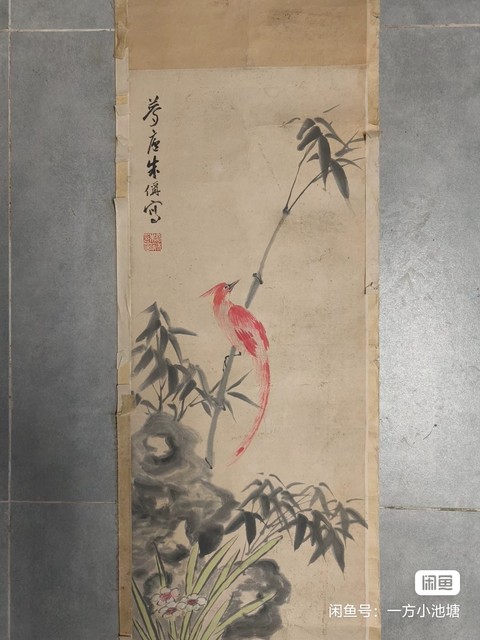 夢廬朱偁寫
闲鱼
闲鱼号：一方小池塘